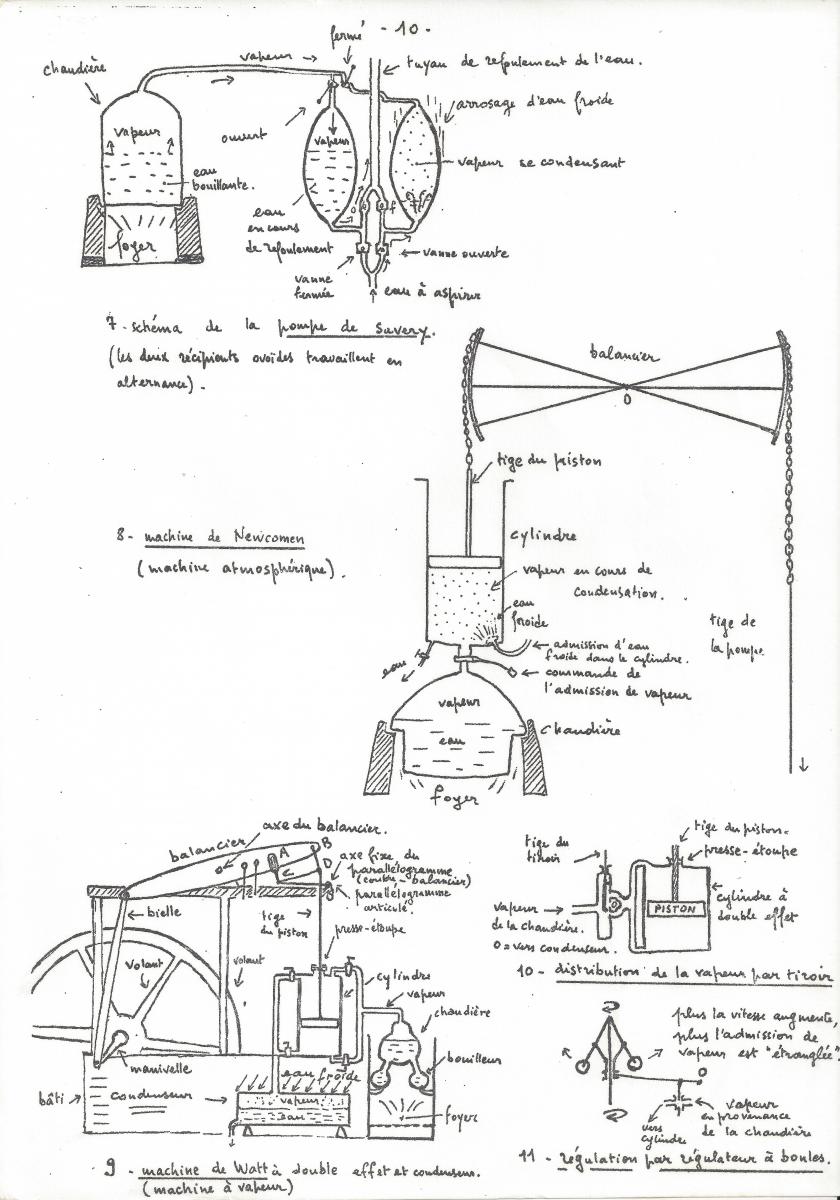 - 10 -
fermé
vapeur
chaudière
tuyau de refoulement de l'eau.
arrosage d'eau froide
ouvert
vapeur
vapeur
vapeur se condensant
eau
bouillante.
eau
en cours
de refoulement
foyer
vanne ouverte
vanne
fermée
eau à aspirer
7 - schéma de la pompe de Savery.
(les deux récipients ovoïdes travaillent en
alternance).
balancier
O
tige du piston
8 - machine de Newcomen
(machine atmosphérique).
cylindre
vapeur en cours de
condensation.
eau
froide
admission d'eau
froide dans le cylindre.
eau
commande de
l'admission de vapeur
tige de
la pompe.
vapeur
eau
chaudière
foyer
axe du balancier.
balancier
A
B
D
axe fixe du
parallélogramme
(contre-balancier)
parallélogramme
articulé.
bielle
tige
du piston
presse-étoupe
volant
volant
cylindre
vapeur
chaudière
manivelle
bouilleur
bâti
condenseur
eau froide
vapeur
eau
foyer
9 - machine de Watt à double effet et condenseur.
(machine à vapeur)
tige du
tiroir
tige du piston.
presse-étoupe
vapeur
de la chaudière.
O = vers condenseur.
PISTON
cylindre à
double effet
10 - distribution de la vapeur par tiroir
plus la vitesse augmente,
plus l'admission de
vapeur est "étranglée".
vers
cylindre
vapeur
en provenance
de la chaudière
11 - régulation par régulateur à boules.